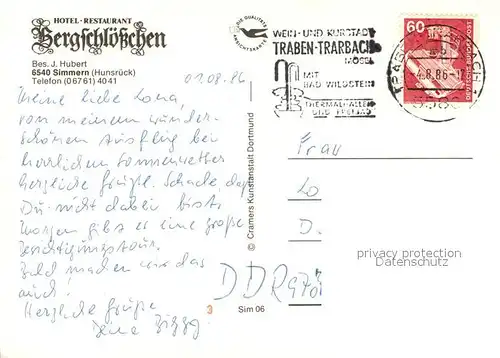 HOTEL-RESTAURANT
Bergschlößchen
Bes. J. Hubert
6540 Simmern (Hunsrück)
Telefon (06761) 4041
01.08.86
Meine liebe Lona,
von meinem wunder-
schönen Ausflug bei
herrlichem Sonnenwetter
herzliche Grüße. Schade, daß
Du nicht dabei bist.
Morgen gibt es eine große
Besichtigungstour.
Bald machen wir das
auch!
Herzliche Grüße
Deine
DIE QUALITÄTS
ANSICHTSKARTE
WEIN- UND KURSTADT
TRABEN-TRARBACH
MOSEL
MIT
BAD WILDSTEIN
THERMALHALLEN
UND FREIBAD
60
DEUTSCHE BUNDESPOST
4.8.86
Frau
Lo
D.
DDR 970
privacy protection
Datenschutz
© Cramers Kunstanstalt Dortmund
3
Sim 06